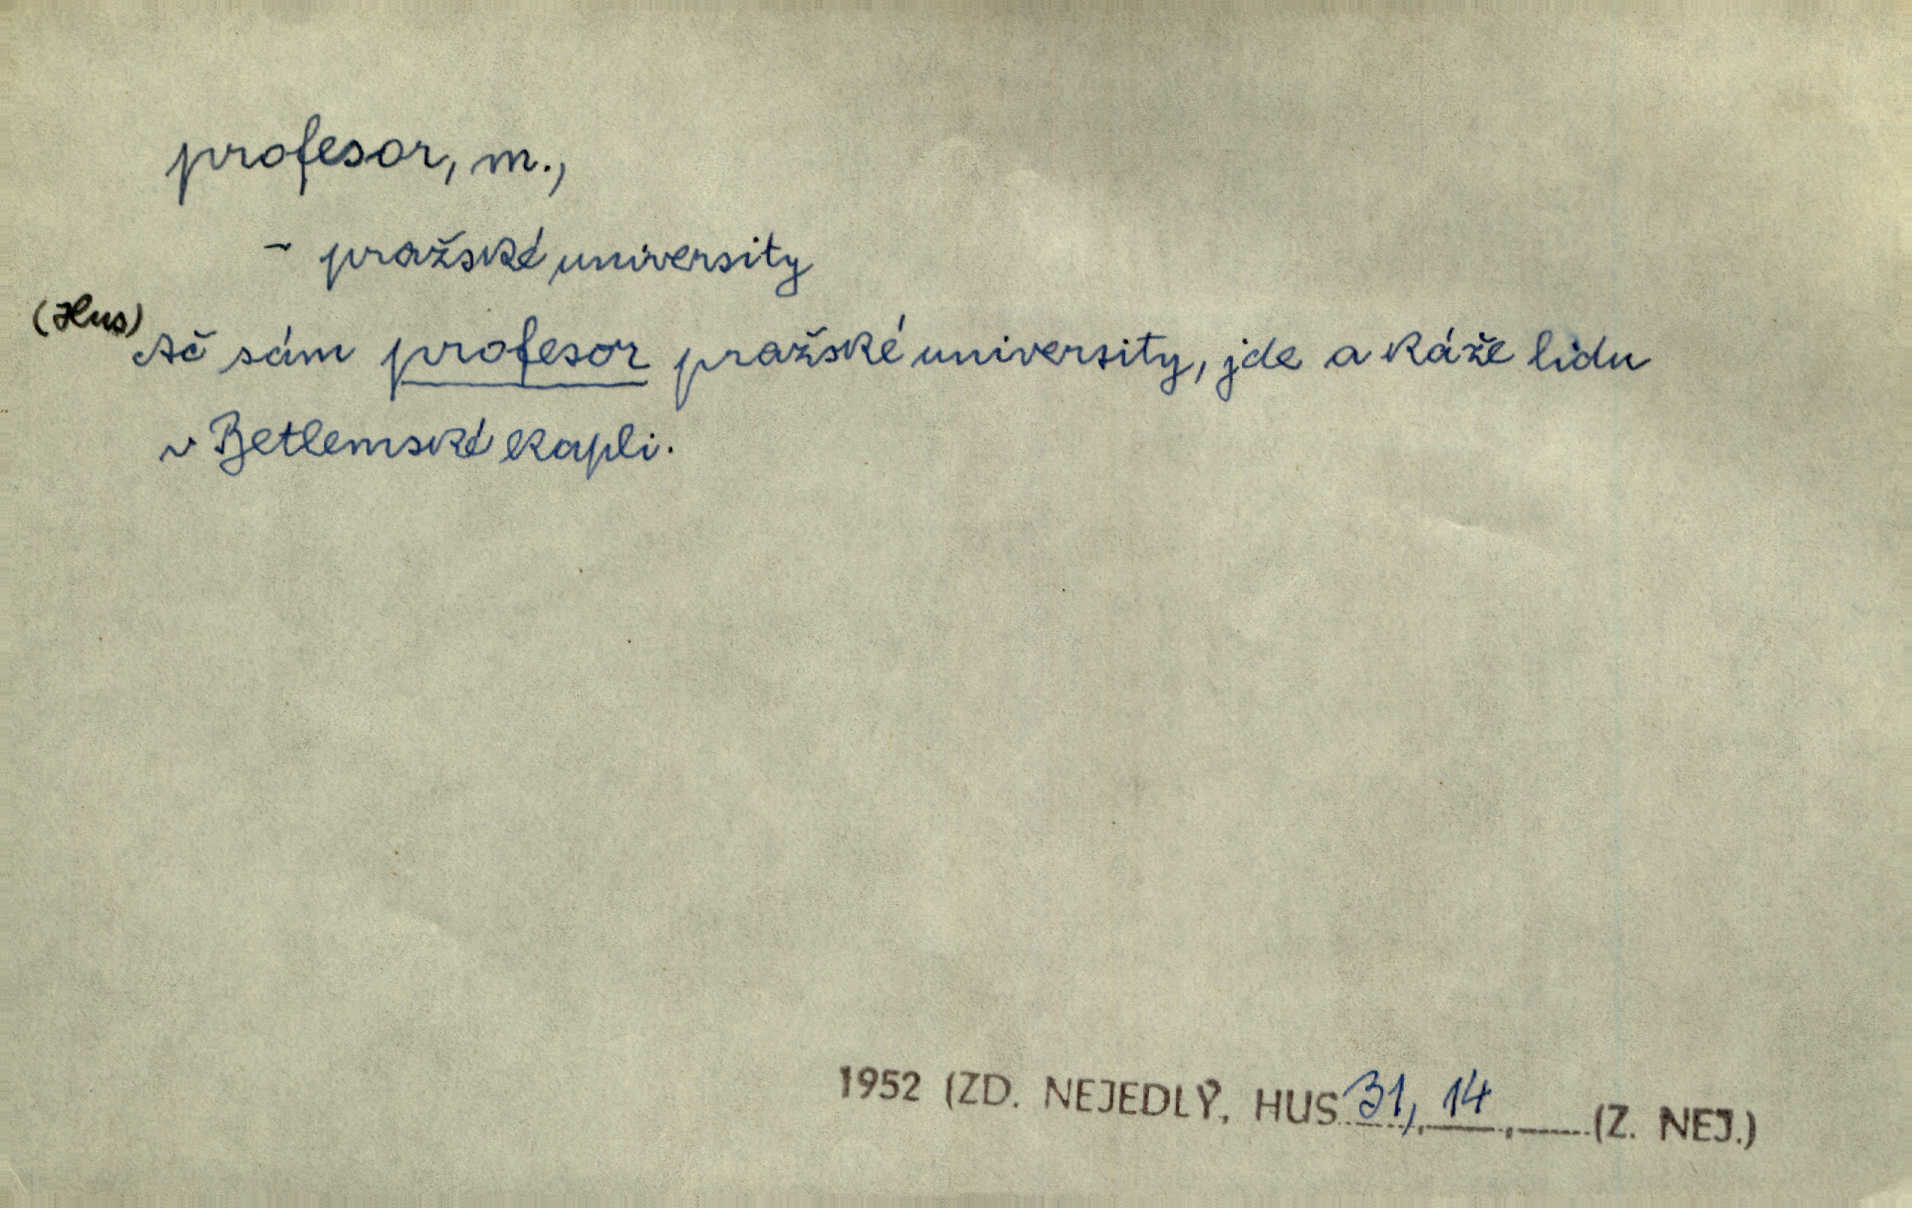 profesor, m.,
– pražské university
(Hus) Ač sám profesor pražské university, jde a káže lidu
v Betlemské kapli.
1952 (ZD. NEJEDLÝ, HUS 31, 14, (Z. NEJ.)